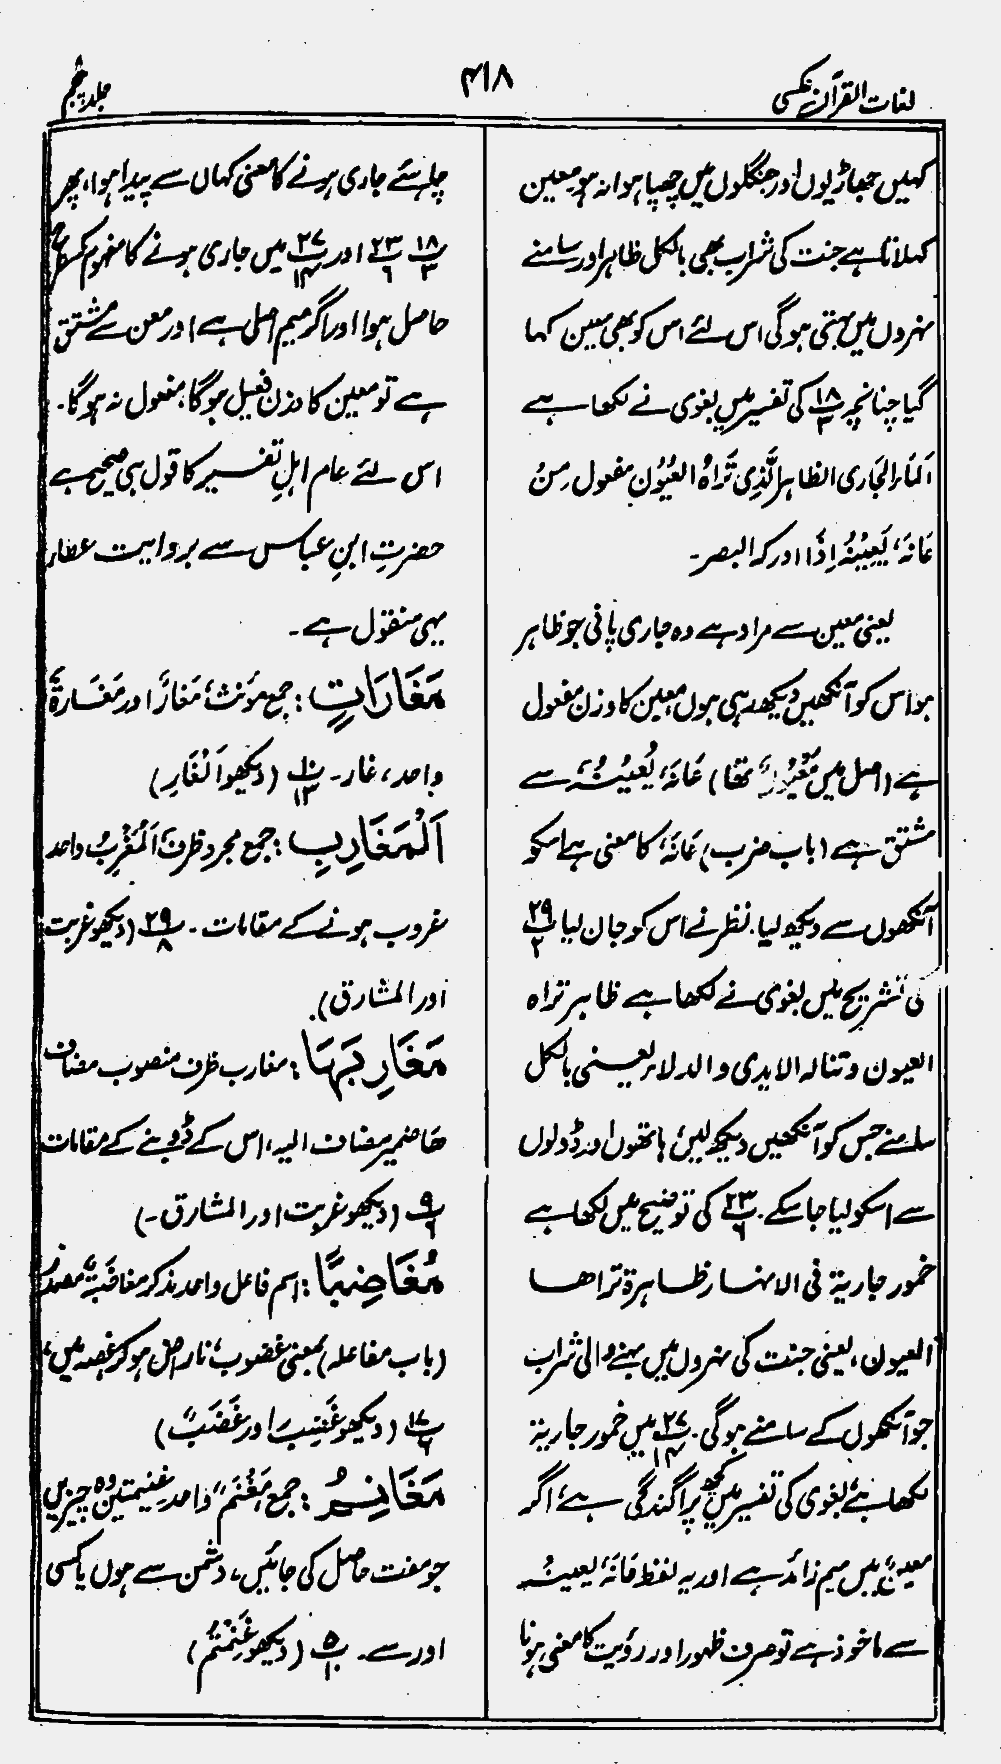 لغات القرآن عکسی
۴۱۸
جلد پنجم
کہیں جھاڑیوں اور جنگلوں میں چھپا ہوا نہ ہو معین
کہلاتا ہے جنت کی شراب بھی بالکل ظاہر اور سامنے
نہروں میں بہتی ہوگی اس لئے اس کو بھی معین کہا
گیا چنانچہ پ ۱۸/۳ کی تفسیر میں بغوی نے لکھا ہے
اَلماءُ الجَاری الظاہر الَّذِی تَراہُ العُیُون مفعول مِنْ
عَانَہٗ یَعِیْنُہٗ اِذَا ادرکہ البصر۔
یعنی معین سے مراد ہے وہ جاری پانی جو ظاہر
ہو اس کو آنکھیں دیکھ رہی ہوں معین کا وزن مفعول
ہے (اصل میں مَعْیُوْنٌ تھا) عَانَہٗ یَعِیْنُہٗ سے
مشتق ہے (باب ضرب) عَانَہٗ کا معنی ہے اسکو
آنکھوں سے دیکھ لیا۔ نظر نے اس کو جان لیا پ ۲۹/۲
کی تشریح میں بغوی نے لکھا ہے ظاہر تراہ
العیون و تنالہ الایدی والدلاء یعنی بالکل
سامنے جس کو آنکھیں دیکھ لیں، ہاتھوں اور ڈولوں
سے اسکو لیا جا سکے۔ پ ۲۳/۶ کی توضیح میں لکھا ہے
خمور جاریۃ فی الانہار ظاہرۃ تراھا
العیون، یعنی جنت کی نہروں میں بہنے والی شراب
جو آنکھوں کے سامنے ہوگی۔ پ ۲۷/۱۴ میں خمور جاریۃ
لکھا ہے بغوی کی تفسیر میں کچھ پراگندگی ہے، اگر
معین میں میم زائد ہے اور یہ لفظ عَانَہٗ یعینہ
سے ماخوذ ہے تو صرف ظہور اور رؤیت کا معنی ہونا
چاہئے جاری ہونے کا معنی کہاں سے پیدا ہوا، پھر
پ ۱۸/۳ پ ۲۳/۶ اور پ ۲۷/۱۴ میں جاری ہونے کا مفہوم کس طرح
حاصل ہوا اور اگر میم اصلی ہے اور معن سے مشتق
ہے تو معین کا وزن فعیل ہوگا، مفعول نہ ہوگا۔
اس لئے عام اہلِ تفسیر کا قول ہی صحیح ہے
حضرتِ ابنِ عباس سے بروایت عطار
یہی منقول ہے۔
مَغَارَاتٍ : جمع مؤنث، مَغَارٌ اور مَغَارَۃٌ
واحد، غار۔ پ ۱۰/۱۳ (دیکھو اَلْغَارِ)
اَلْمَغَارِبِ : جمع مجرور ظرف، اَلْمَغْرِبُ واحد
غروب ہونے کے مقامات۔ پ ۲۹/۸ (دیکھو غربت
اور المشارق)
مَغَارِبَہَا : مغارب ظرف منصوب مضاف
ھا ضمیر مضاف الیہ، اس کے ڈوبنے کے مقامات
پ ۹/۶ (دیکھو غربت اور المشارق۔)
مُغَاضِبًا : اسم فاعل واحد مذکر مغاضَبَۃٌ مصدر
(باب مفاعلہ) بمعنی غضوب، ناراض ہو کر غصہ میں،
پ ۱۷/۶ (دیکھو غَضِبَ اور غَضَبٌ)
مَغَانِمُ : جمع، مَغْنَمٌ واحد غنیمتیں وہ چیزیں
جو مفت حاصل کی جائیں، دشمن سے ہوں یا کسی
اور سے۔ پ ۵/۱۰ (دیکھو غَنِمْتُمْ)